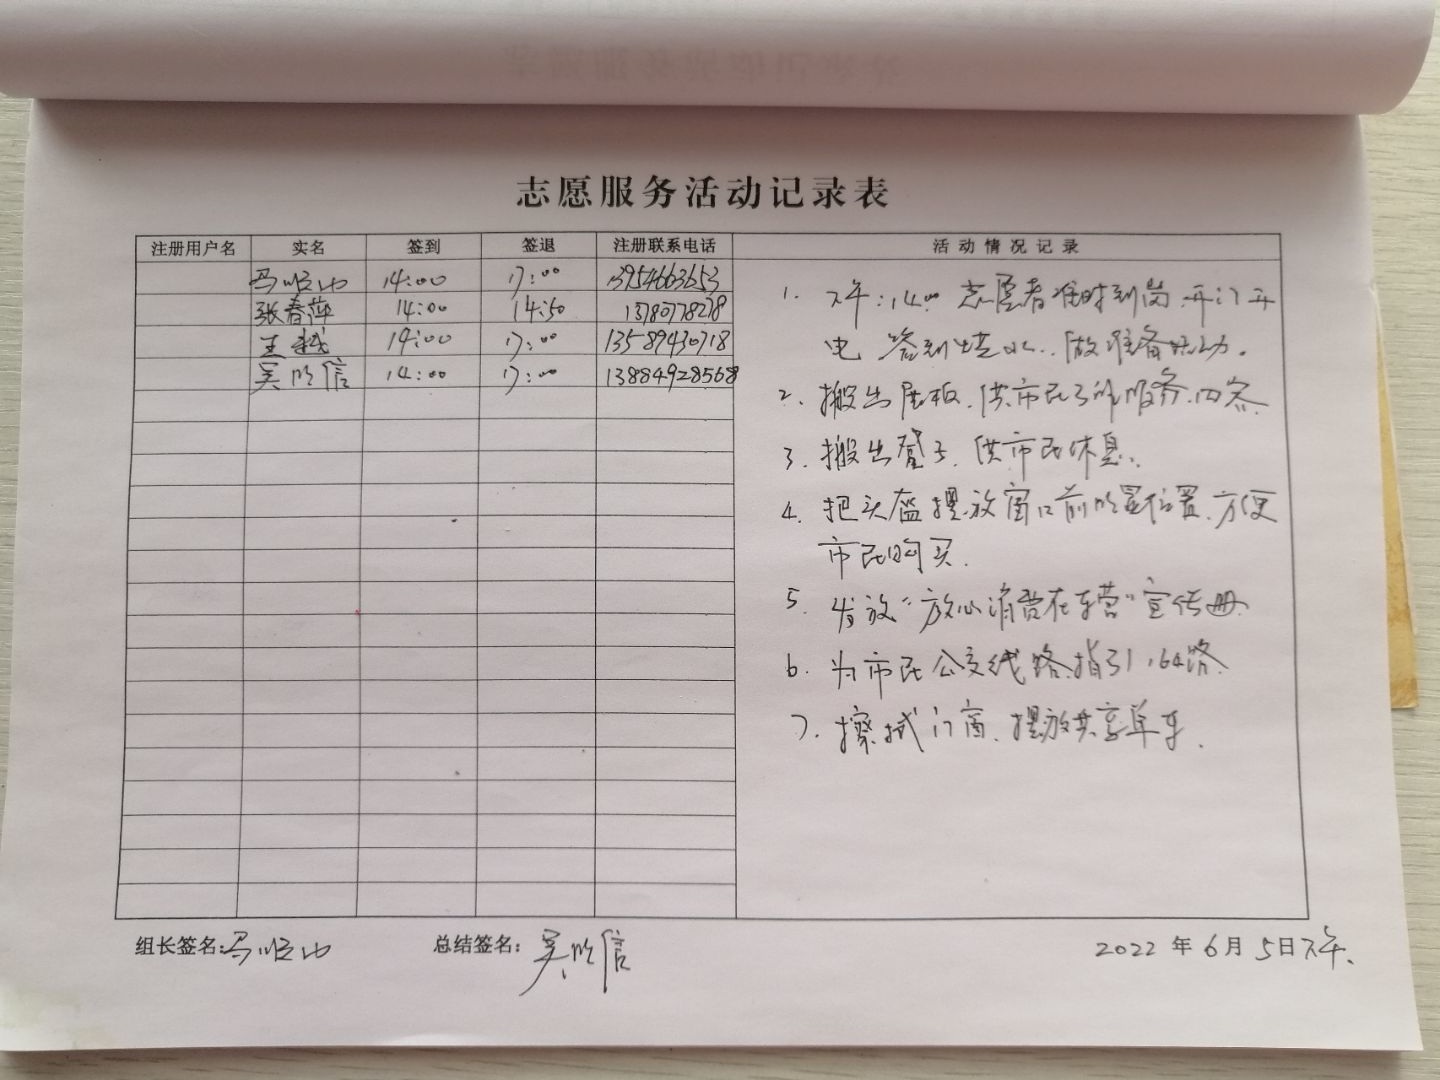 志愿服务活动记录表
注册用户名 实名 签到 签退 注册联系电话 活动情况记录
14:00 17:00 13954663653
张春萍 14:00 14:50
王 14:00 17:00 13589430718
吴 信 14:00 17:00 13884928568
1. 下午:14:00 志愿者准时到岗.开门开
电 签到烧水..做准备活动.
2. 搬出展板.供市民了解服务内容.
3. 搬出凳子.供市民休息.
4. 把头盔摆放窗口前明显位置.方便
市民购买.
5. 发放"放心消费在东营"宣传册
6. 为市民公交线路指引,64路.
7. 擦拭门窗.摆放共享单车.
组长签名:
总结签名: 吴 信
2022 年 6 月 5 日下午.